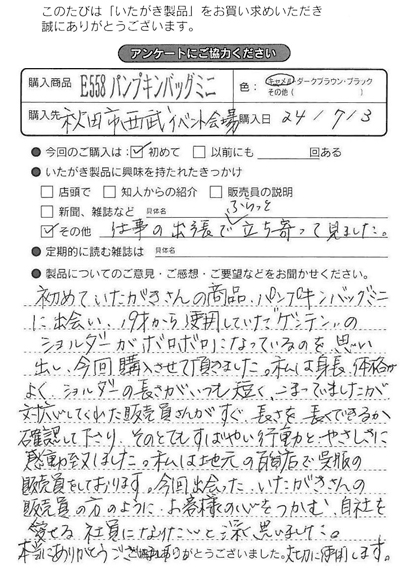 このたびは「いたがき製品」をお買い求めいただき
誠にありがとうございます。
アンケートにご協力ください
購入商品 E558 パンプキンバッグミニ 色: キャメル・ダークブラウン・ブラック
その他( )
購入先 秋田市(西武)イベント会場 購入日 24/7/3
● 今回のご購入は: ☑ 初めて □ 以前にも 回ある
● いたがき製品に興味を持たれたきっかけ
□ 店頭で □ 知人からの紹介 □ 販売員の説明
□ 新聞、雑誌など 具体名
ふらっと
☑ その他 仕事の出張で立ち寄って見ました。
● 定期的に読む雑誌は 具体名
● 製品についてのご意見・ご感想・ご要望などをお聞かせください。
初めていたがきさんの商品、パンプキンバッグミニ
に出会い、19才から使用していた"ゲンテン"の
ショルダーがボロボロになっているのを思い
出し、今回購入させて頂きました。私は身長、体格が
よく、ショルダーの長さがいつも短く、こまってましたが
対応してくれた販売員さんがすぐ、長さを長くできるか
確認して下さり、そのとてもすばやい行動とやさしさに
感動致しました。私は地元の百貨店で呉服の
販売員をしております。今回出会った、いたがきさんの
販売員の方のように、お客様の心をつかむ、自社を
愛せる社員になりたいと深く思いました。
本当にありがとうございました。大切に使用します。
ありがとうございました。